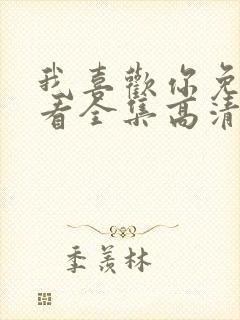 我喜歡你免
看全集高清
季羨林